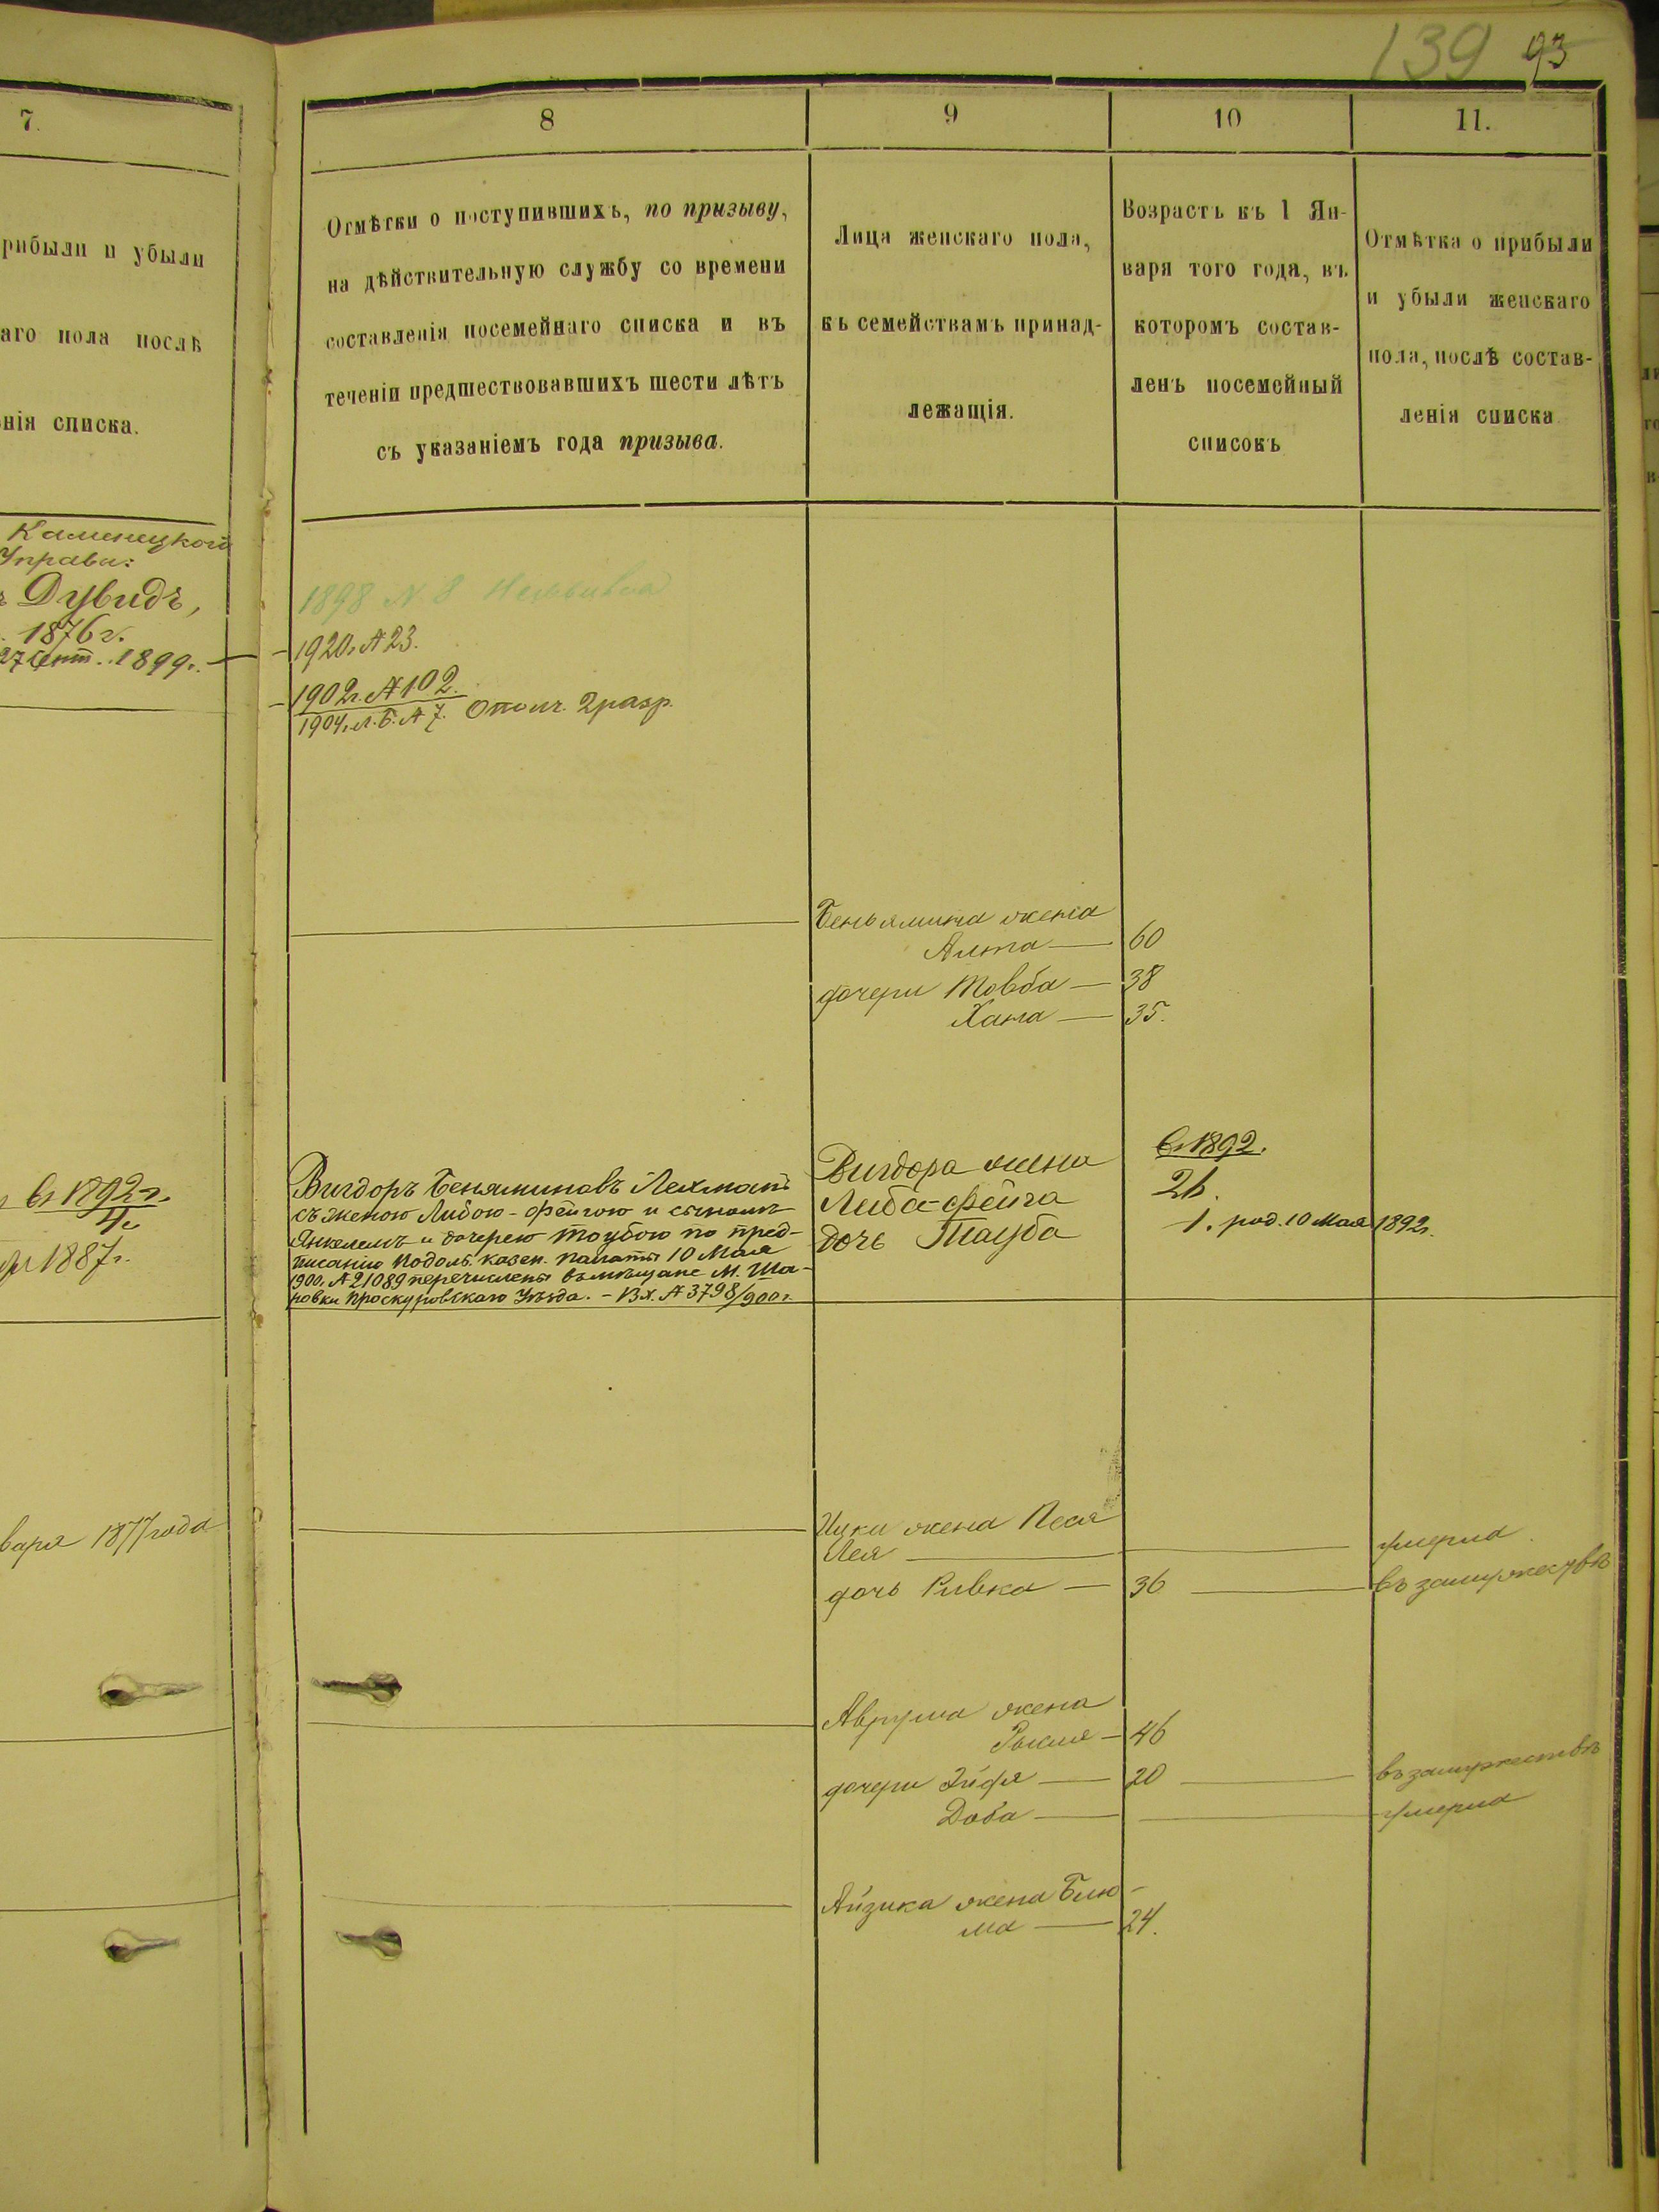 139 93
7.
8
9
10
11.
рибыли и убыли
аго пола послѣ
нія списка.
Отмѣтки о поступившихъ, по призыву,
на дѣйствительную службу со времени
составленія посемейнаго списка и въ
теченіи предшествовавшихъ шести лѣтъ
съ указаніемъ года призыва.
Лица женскаго пола,
къ семействамъ принад-
лежащія.
Возрастъ къ 1 Ян-
варя того года, въ
которомъ состав-
ленъ посемейный
списокъ
Отмѣтка о прибыли
и убыли женскаго
пола, послѣ состав-
ленія списка
Каменецкой
Управы:
Дувидъ,
1876 г.
27 Сент. 1899 г.
1898 N. 8
1920 г. № 23.
1902 г. № 102.
1904 г. л. Б. № 7. Ополч. 2 разр.
Беньямина жена
60
дочери Товба — 38
Хана — 35.
въ 1892 г.
4
1887 г.
Вигдоръ Беняминовъ Лехманъ
съ женою Либою-Фейгою и сыномъ
Янкелемъ и дочерею Таубою по пред-
писанію Подоль. казен. палаты 10 Мая
1900 г. № 21089 перечислены въ мѣщане М. Ша-
ровки Проскуровскаго Уѣзда. - Вх. № 3798/900 г.
Вигдора жена
Либа-Фейга
дочь Тауба
въ 1892.
26.
1. род. 10 Мая 1892 г.
варя 1877 года
Ицки жена Песя
Лея — умерла
дочь Ривка — 36 — въ замужествѣ
Аврума жена
46
дочери 20 — въ замужествѣ
Доба — умерла
Айзика жена Блю-
ма — 24.